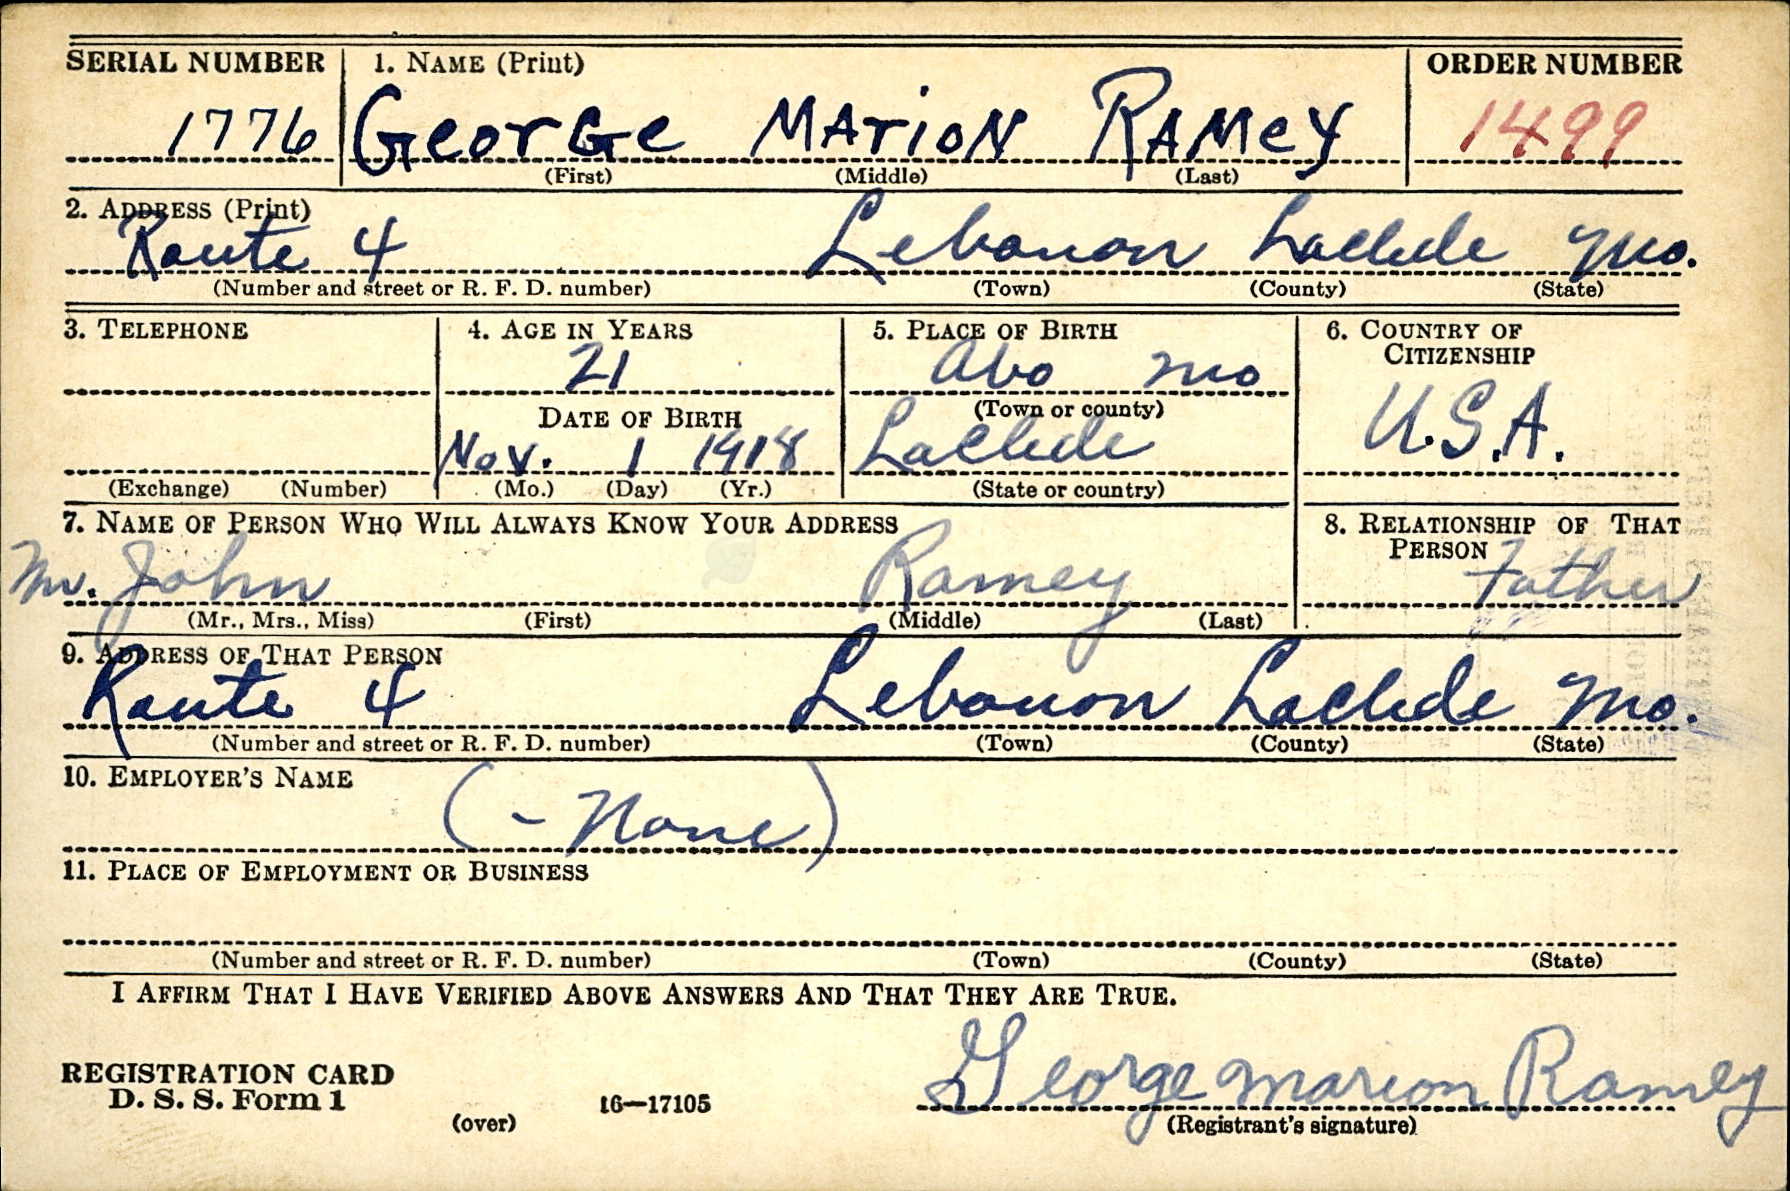 SERIAL NUMBER 1. NAME (Print) ORDER NUMBER
1776 GeorGe MArioN RAMey 1499
(First) (Middle) (Last)
2. ADDRESS (Print)
Route 4 Lebanon Laclede Mo.
(Number and street or R. F. D. number) (Town) (County) (State)
3. TELEPHONE 4. AGE IN YEARS 5. PLACE OF BIRTH 6. COUNTRY OF
CITIZENSHIP
21 Abo Mo
DATE OF BIRTH (Town or county) U.S.A.
Nov. 1 1918 Laclede
(Exchange) (Number) (Mo.) (Day) (Yr.) (State or country)
7. NAME OF PERSON WHO WILL ALWAYS KNOW YOUR ADDRESS 8. RELATIONSHIP OF THAT
PERSON
Mr. John Ramey Father
(Mr., Mrs., Miss) (First) (Middle) (Last)
9. ADDRESS OF THAT PERSON
Route 4 Lebanon Laclede Mo.
(Number and street or R. F. D. number) (Town) (County) (State)
10. EMPLOYER'S NAME
(- None)
11. PLACE OF EMPLOYMENT OR BUSINESS
(Number and street or R. F. D. number) (Town) (County) (State)
I AFFIRM THAT I HAVE VERIFIED ABOVE ANSWERS AND THAT THEY ARE TRUE.
George Marion Ramey
REGISTRATION CARD
D. S. S. Form 1
(over) 16—17105 (Registrant's signature)